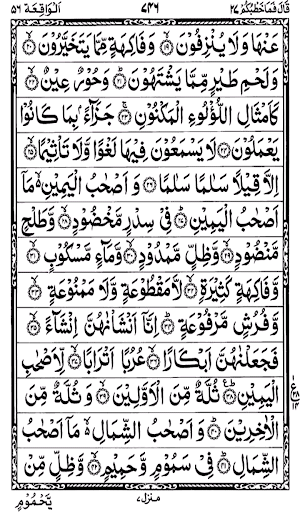 قَالَ فَمَا خَطْبُكُمْ ٢٧ ٧٤٦ اَلْوَاقِعَة ٥٦
عَنْهَا وَلَا يُنْزِفُوْنَ ۙ﴿۱۹﴾ وَفَاكِهَةٍ مِّمَّا يَتَخَيَّرُوْنَ ۙ﴿۲۰﴾
وَلَحْمِ طَيْرٍ مِّمَّا يَشْتَهُوْنَ ؕ﴿۲۱﴾ وَحُوْرٌ عِيْنٌ ۙ﴿۲۲﴾
كَاَمْثَالِ اللُّؤْلُوَٴ الْمَكْنُوْنِ ۚ﴿۲۳﴾ جَزَآءًۢ بِمَا كَانُوْا
يَعْمَلُوْنَ ﴿۲۴﴾ لَا يَسْمَعُوْنَ فِيْهَا لَغْوًا وَّلَا تَاْثِيْمًا ۙ﴿۲۵﴾
اِلَّا قِيْلًا سَلٰمًا سَلٰمًا ﴿۲۶﴾ وَ اَصْحٰبُ الْيَمِيْنِ ۙ۬ مَاۤ
اَصْحٰبُ الْيَمِيْنِ ؕ﴿۲۷﴾ فِيْ سِدْرٍ مَّخْضُوْدٍ ۙ﴿۲۸﴾ وَّطَلْحٍ
مَّنْضُوْدٍ ۙ﴿۲۹﴾ وَّظِلٍّ مَّمْدُوْدٍ ۙ﴿۳۰﴾ وَّمَآءٍ مَّسْكُوْبٍ ۙ﴿۳۱﴾
وَّفَاكِهَةٍ كَثِيْرَةٍ ۙ﴿۳۲﴾ لَّا مَقْطُوْعَةٍ وَّلَا مَمْنُوْعَةٍ ۙ﴿۳۳﴾
وَّفُرُشٍ مَّرْفُوْعَةٍ ؕ﴿۳۴﴾ اِنَّاۤ اَنْشَاْنٰهُنَّ اِنْشَآءً ۙ﴿۳۵﴾
فَجَعَلْنٰهُنَّ اَبْكَارًا ۙ﴿۳۶﴾ عُرُبًا اَتْرَابًا ۙ﴿۳۷﴾ لِّاَصْحٰبِ
الْيَمِيْنِ ؕ﴿۳۸﴾ ثُلَّةٌ مِّنَ الْاَوَّلِيْنَ ۙ﴿۳۹﴾ وَ ثُلَّةٌ مِّنَ
الْاٰخِرِيْنَ ؕ﴿۴۰﴾ وَ اَصْحٰبُ الشِّمَالِ ۙ۬ مَاۤ اَصْحٰبُ
الشِّمَالِ ؕ﴿۴۱﴾ فِيْ سَمُوْمٍ وَّحَمِيْمٍ ۙ﴿۴۲﴾ وَّظِلٍّ مِّنْ
يَّحْمُوْمٍ
منزل ٧